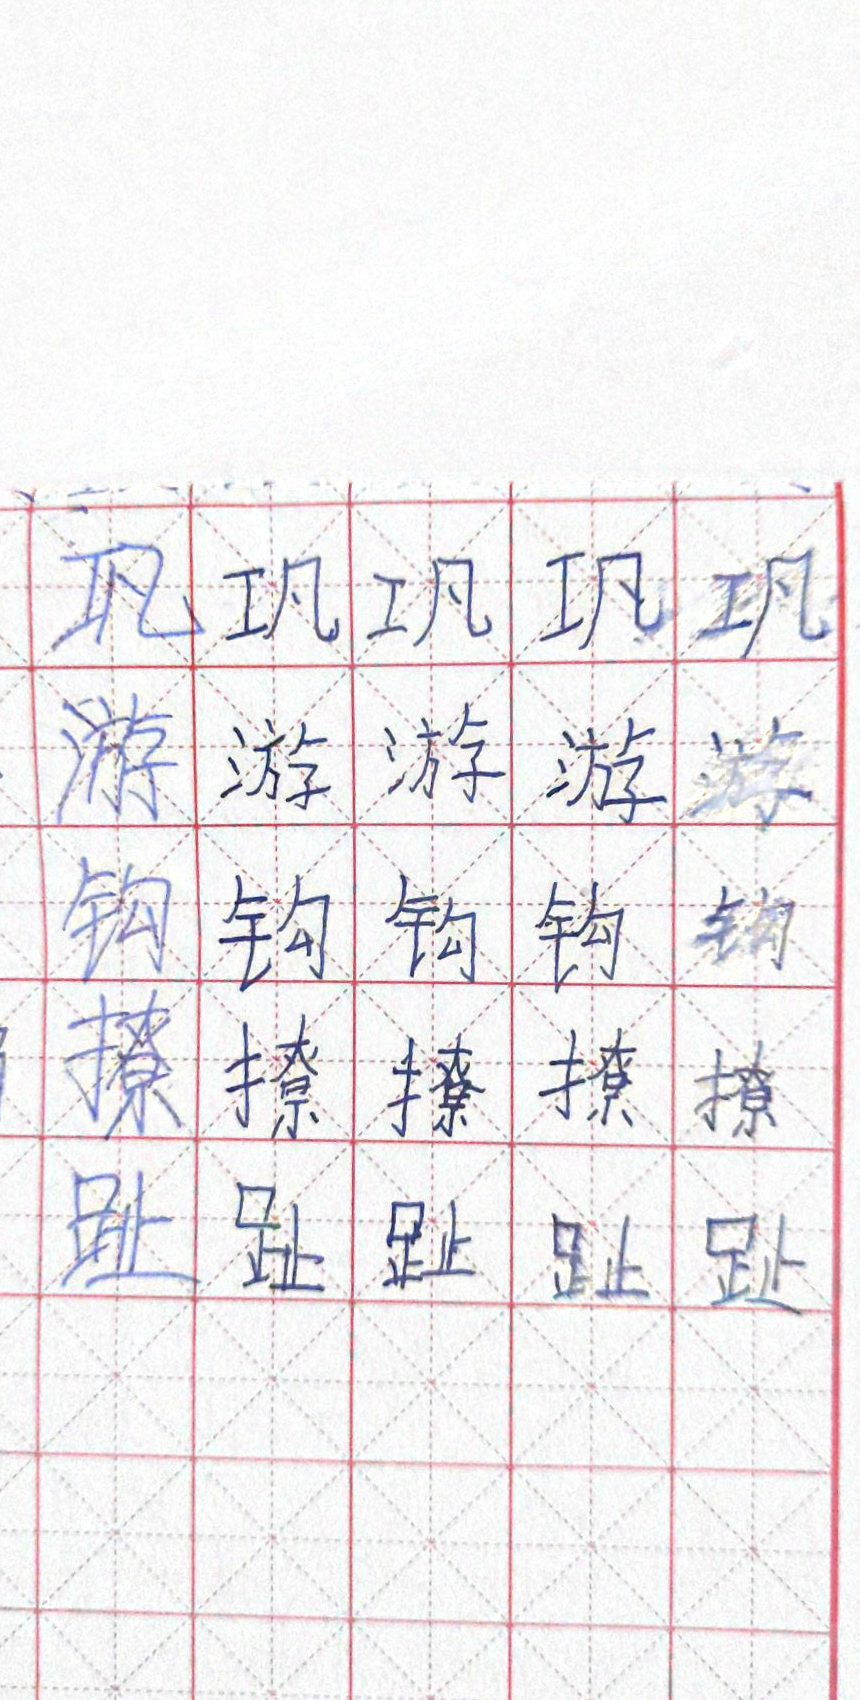 巩巩巩巩巩
游游游游游
钩钩钩钩钩
撩撩撩撩撩
趾趾趾趾趾